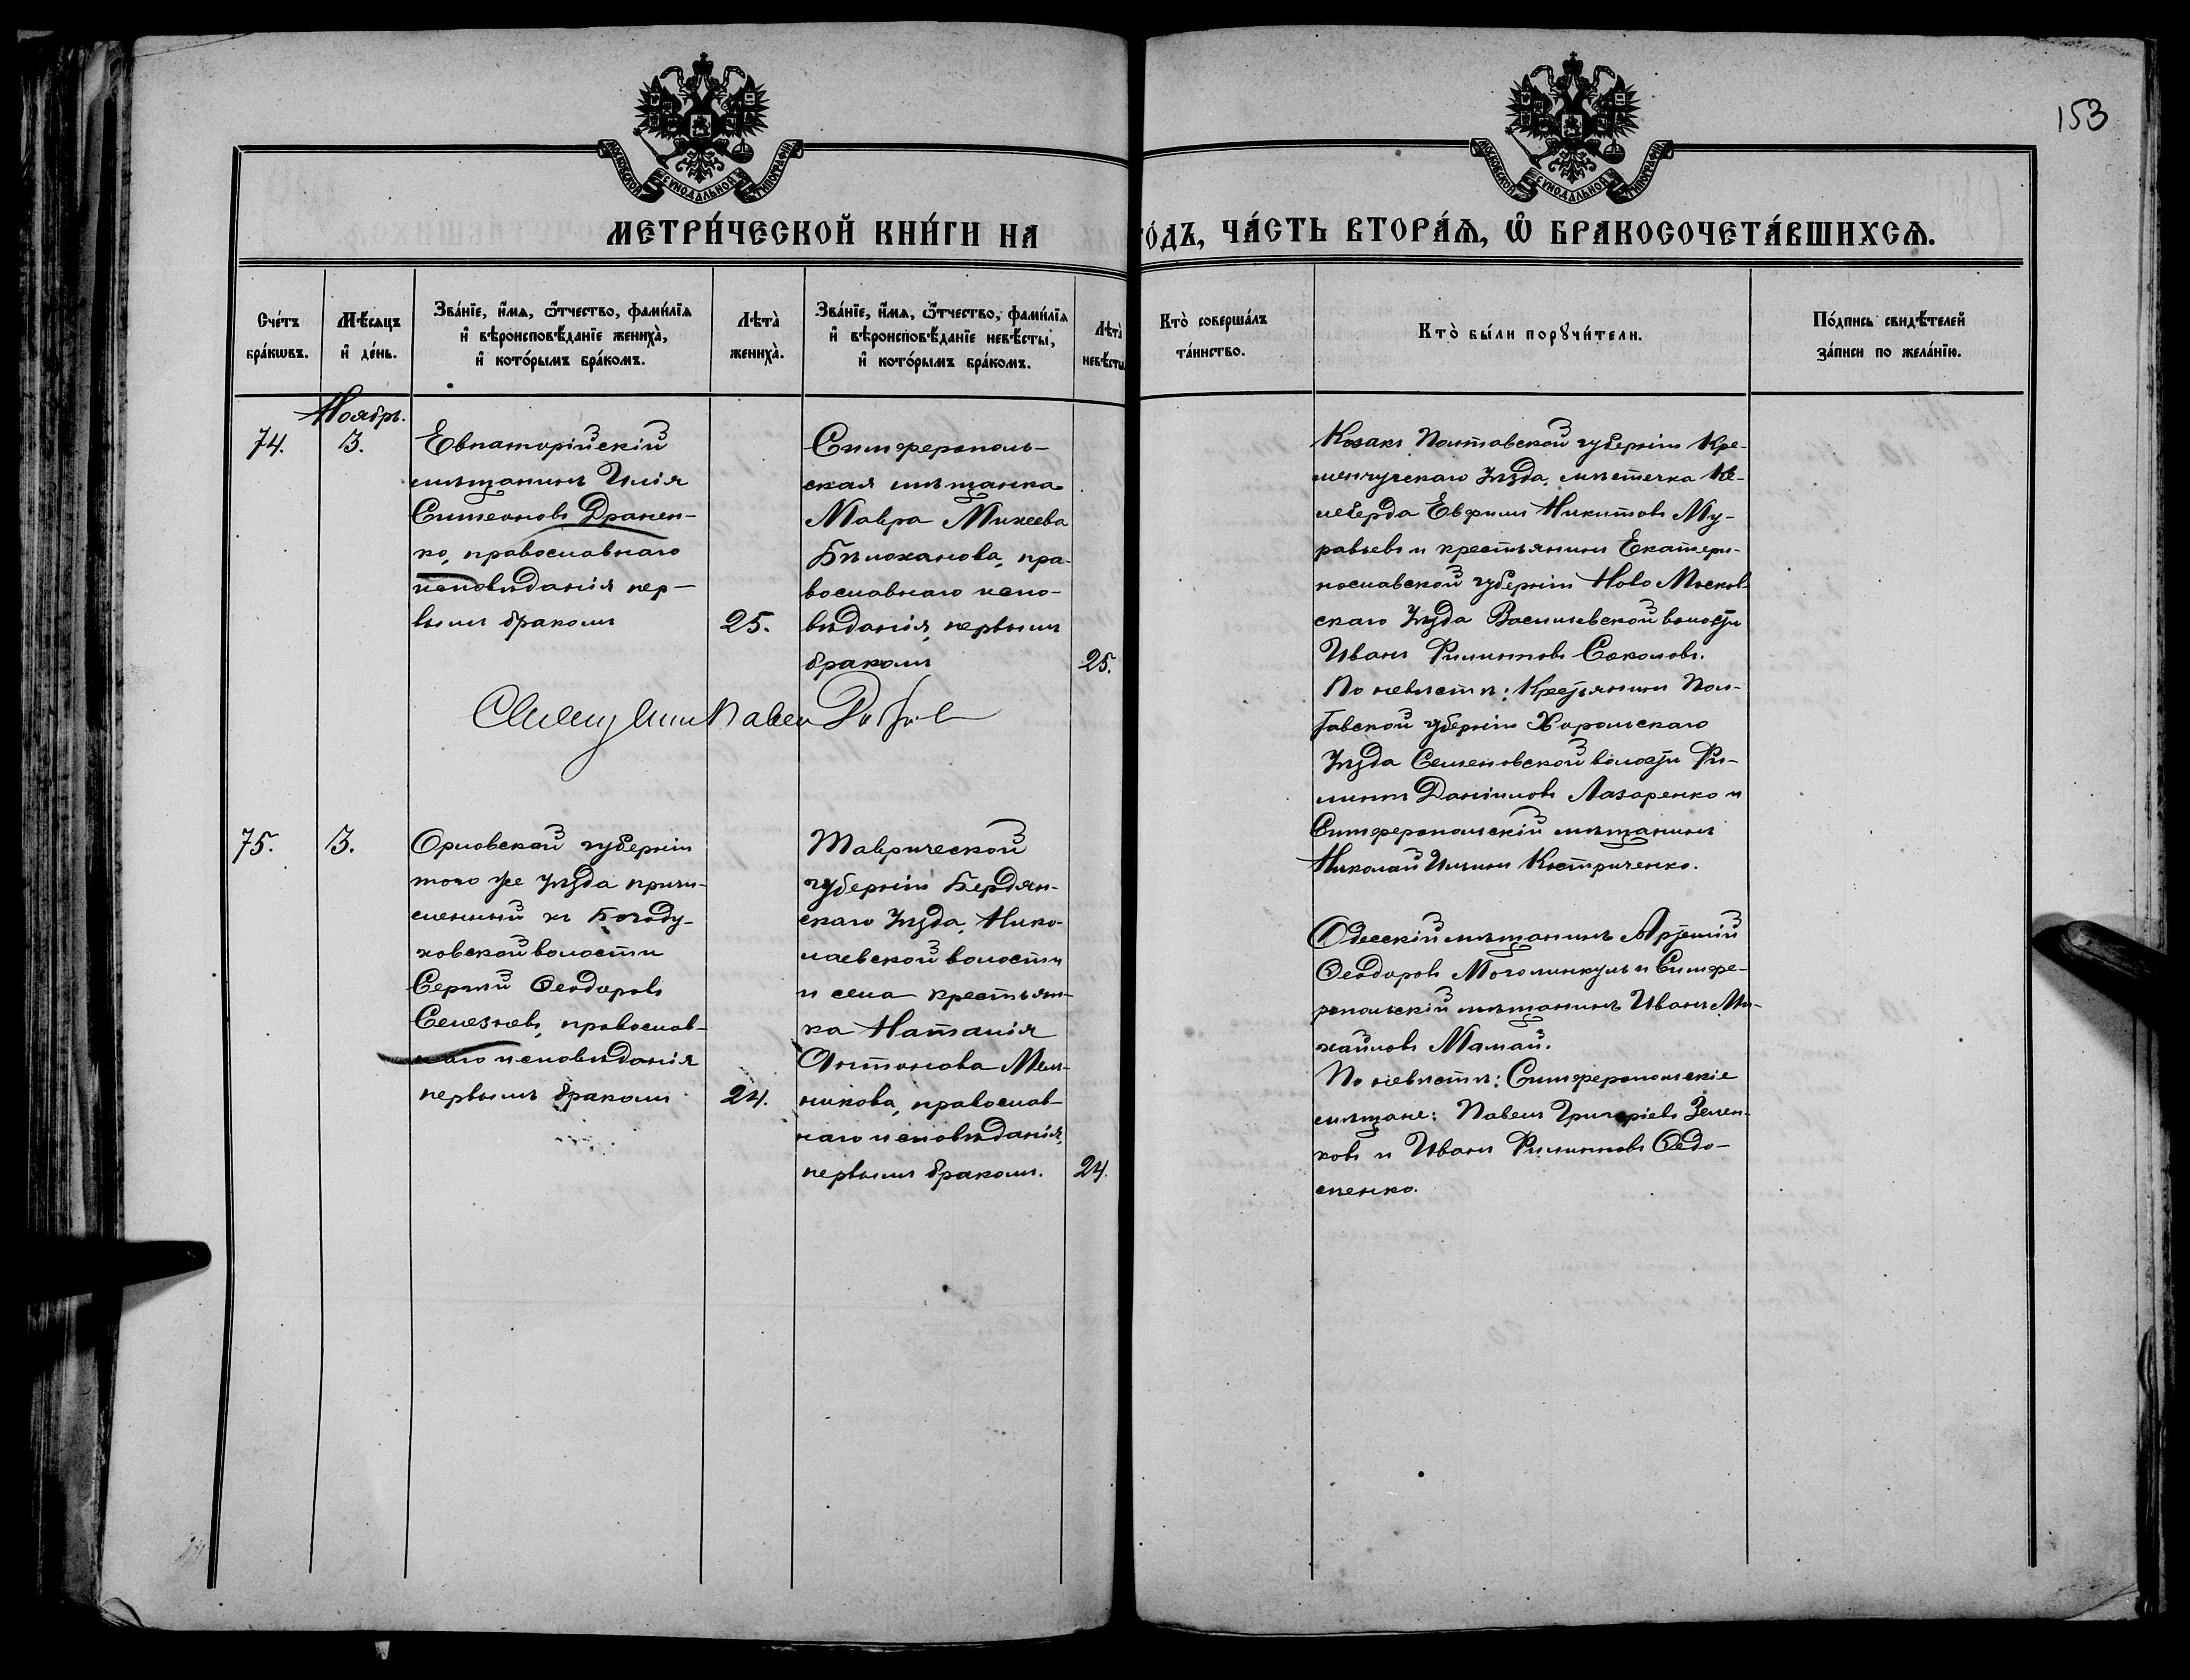 153
МОСКОВСКОЙ СѴНОДАЛЬНОЙ ТИПОГРАФІИ
МОСКОВСКОЙ СѴНОДАЛЬНОЙ ТИПОГРАФІИ
МЕТРИ́ЧЕСКОЙ КНИ́ГИ НА
ГО́ДЪ, ЧА́СТЬ ВТОРА́Ѧ, Ѽ БРАКОСОЧЕТА́ВШИХСѦ.
Сче́тъ бра́кѡвъ.
Мѣ́сяцъ и҆ де́нь.
Зва́нїе, и҆́мѧ, ѻ҆́тчество, фами́лїѧ и҆ вѣроисповѣ́данїе жениха̀, и҆ кото́рымъ бра́комъ.
Лѣта̀ жениха̀.
Зва́нїе, и҆́мѧ, ѻ҆́тчество, фами́лїѧ и҆ вѣроисповѣ́данїе невѣ́сты, и҆ кото́рымъ бра́комъ.
Лѣта̀ невѣ́сты
Кто̀ соверша́лъ та́инство.
Кто̀ бы́ли порꙋчи́тели.
По́дпись свидѣ́телей за́писи по жела́нїю.
Ноябрь.
74.
3.
Евпаторійскій
мѣщанинъ Илія
Симеоновъ Дранен-
ко, православнаго
исповѣданія пер-
вымъ бракомъ
25.
Симферополь-
ская мѣщанка
Мавра Михеева
Бѣлоханова, пра-
вославнаго испо-
вѣданія, первымъ
бракомъ
25.
Козакъ Полтавской губерніи Кре-
менчугскаго Уѣзда, мѣстечка Ке-
леберда Евфимъ Никитовъ Му-
равьевъ и крестьянинъ Екатери-
нославской губерніи Ново Москов-
скаго Уѣзда Васильевской волости
Иванъ Филиповъ Соколовъ.
По невѣстѣ: Крестьянинъ Пол-
тавской губерніи Хорольскаго
Уѣзда Семеновской волости Фи-
липпъ Даниловъ Лазаренко и
Симферопольскій мѣщанинъ
Николай Ильинъ Костриченко.
Павел
75.
3.
Орловской губерніи
того же Уѣзда причи-
сленный къ Богоду-
ховской волости
Сергій Ѳеодоровъ
Селезневъ, православ-
наго исповѣданія
первымъ бракомъ
24.
Таврической
губерніи Бердян-
скаго Уѣзда, Нико-
лаевской волости
и села крестьян-
ка Наталія
Антонова Мель-
никова, православ-
наго исповѣданія,
первымъ бракомъ.
24.
Одесскій мѣщанинъ Артемій
Ѳеодоровъ Моголинкулъ и Симфе-
ропольскій мѣщанинъ Иванъ Ми-
хайловъ Мамай.
По невѣстѣ: Симферопольскіе
мѣщане: Павелъ Григоріевъ Зелен-
ковъ и Иванъ Филипповъ Ѳедо-
сѣенко.